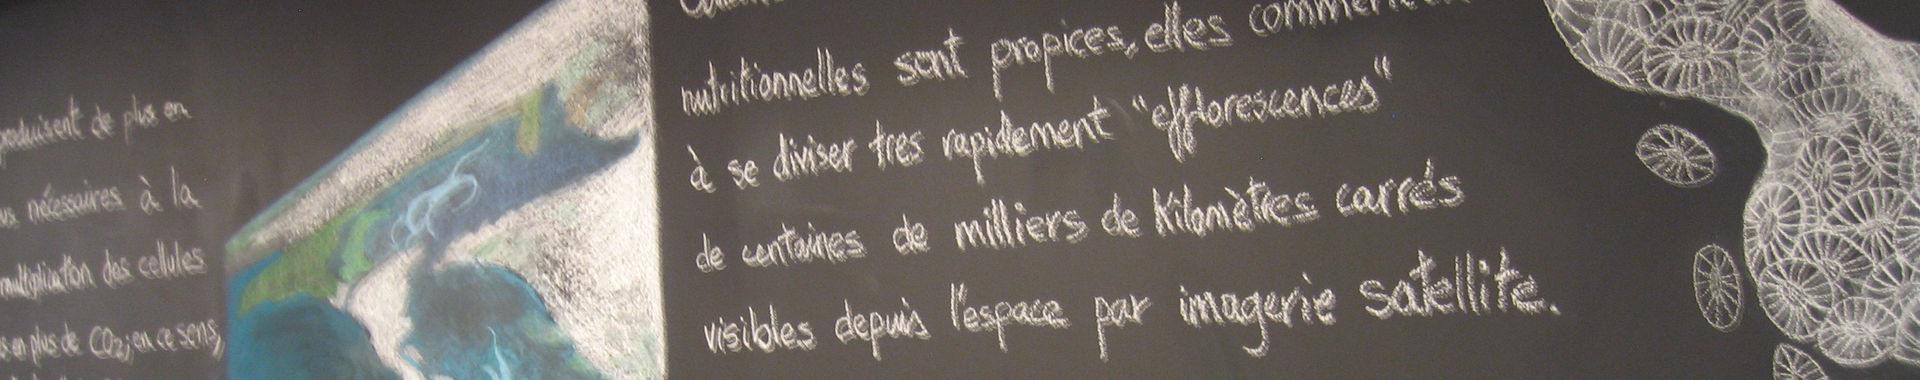 produisent de plus en
nécessaires à la
multiplication des cellules
en plus de CO2; en ce sens,
nutritionnelles sont propices, elles
à se diviser tres rapidement "efflorescences"
de centaines de milliers de Kilomètres carrés
visibles depuis l'espace par imagerie satellite.